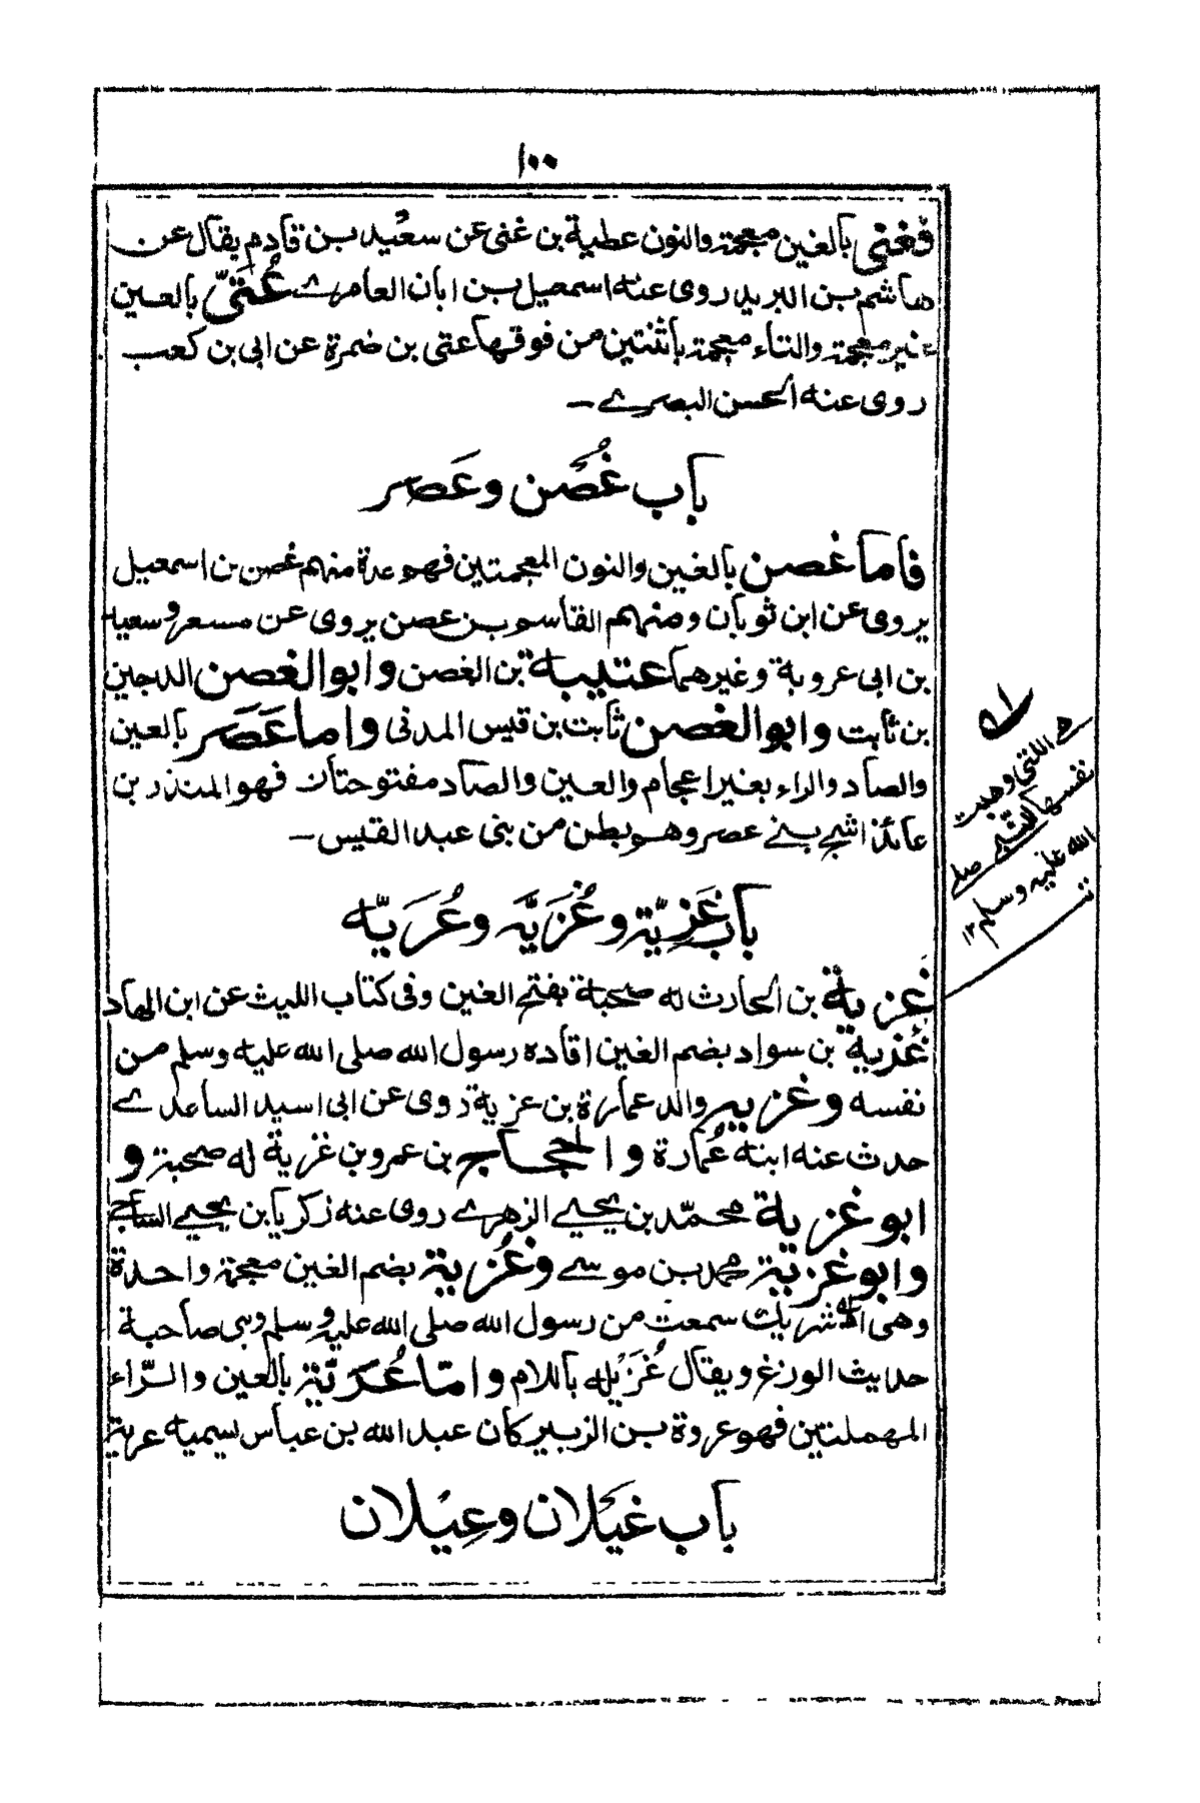 ١٠٠
فغنى بالغين معجمة والنون عطية بن غنى عن سعيد بن قادم يقال عن
هاشم بن البريد روى عنه اسمعيل بن ابان العامرے عُتَيّ بالعين
غير معجمة والتاء معجمة باثنتين من فوقها عتى بن ضمرة عن ابى بن كعب
روى عنه الحسن البصرے ـ
باب غُصْن وعَصَر
فاما غصن بالغين والنون المعجمتين فهو عدة منهم غصن بن اسمعيل
يروى عن ابن ثوبان ومنهم القاسم بن غصن يروى عن مسعر وسعيد
بن ابى عروبة وغيرهما عتيبة بن الغصن وابو الغصن الدجين
بن ثابت وابو الغصن ثابت بن قيس المدنى واما عَصَر بالعين
والصاد والراء بغير اعجام والعين والصاد مفتوحتان فهو المنذر بن
عائذ اشج بنے عصر وهو بطن من بنى عبد القيس ـ
باب غَزِيّة وغُزَيَّه وعُرَيّه
غَزية بن الحارث له صحبة بفتح الغين وفى كتاب الليث عن ابن الهاد
غُزية بن سواد بضم الغين اقاده رسول الله صلى الله عليه وسلم من
نفسه وغزية والد عمارة بن غزية روى عن ابى اسيد الساعدے
حدث عنه ابنه عُمارة والحجاج بن عمرو بن غزية له صحبة و
ابو غزية محمّد بن يحيے الزهرے روى عنه زكريا بن يحيے الساجے
وابو غزية محمد بن موسے وغُزية بضم الغين معجمة واحدة
وهى ام شريك سمعت من رسول الله صلى الله عليه وسلم وهى صاحبة
حديث الوزغ ويقال غُزَيْله باللام وامّا عُرَيّة بالعين والرّاء
المهملتين فهو عروة بن الزبير كان عبد الله بن عباس يسميه عرية
باب غَيْلان وعِيْلان
هے اللتى وهبت
نفسها للنبے صلے
الله عليه وسلم ١٢